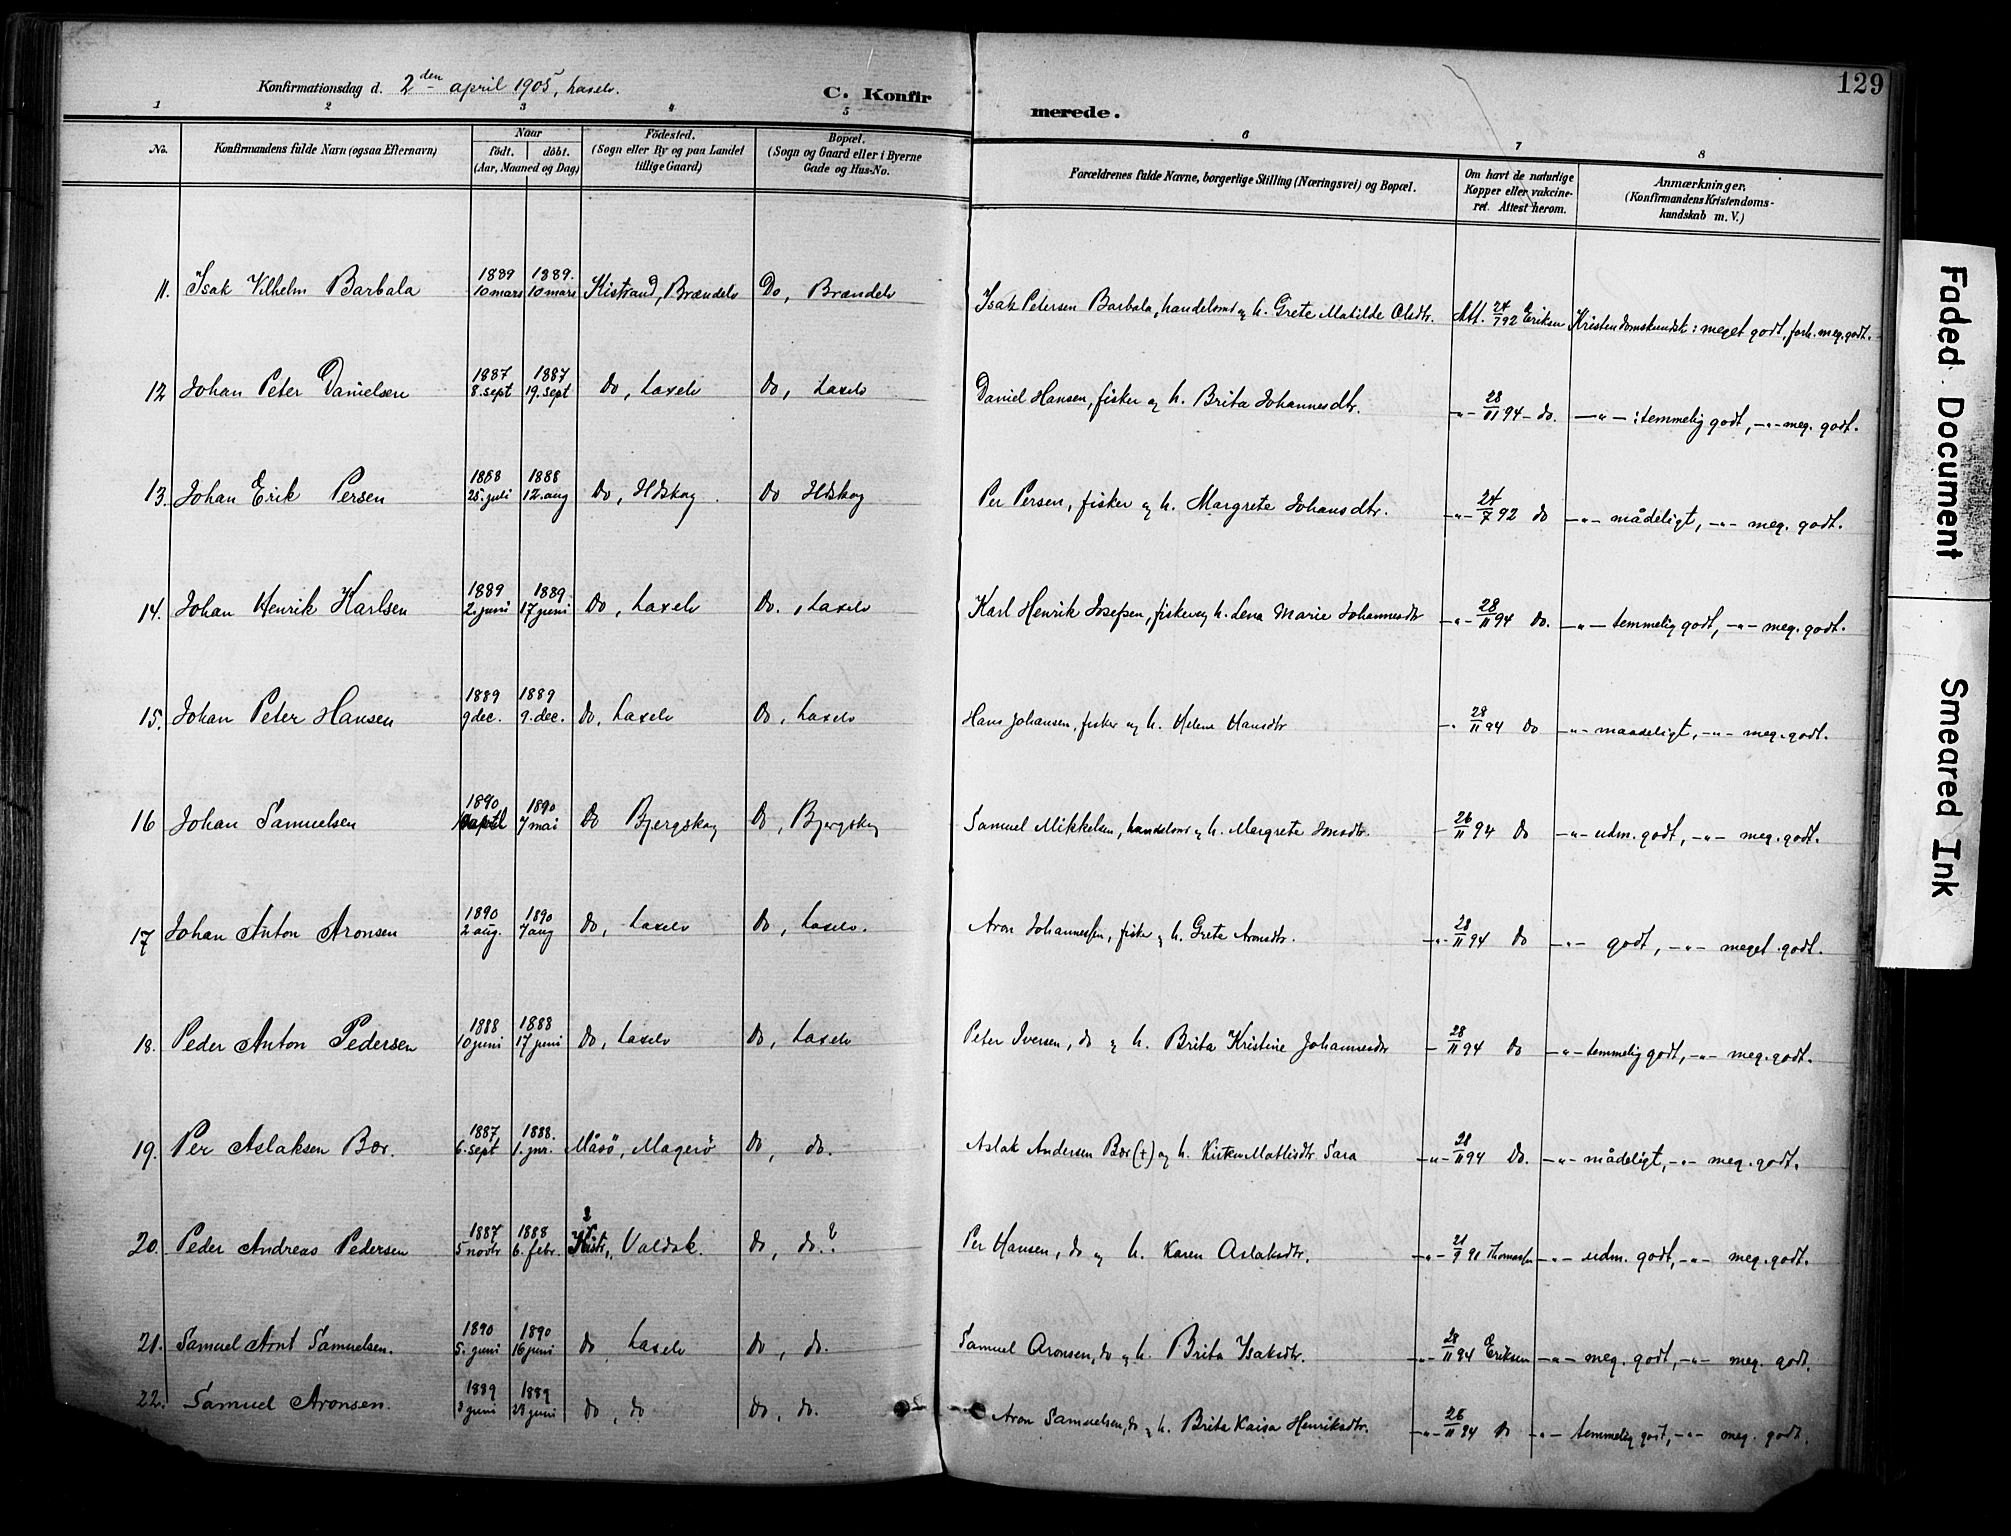 Konfirmationsdag d. 2den april 1905, Laxelv.
C. Konfirmerede.
129
1 2 3 4 5 6 7 8
No.
Konfirmandens fulde Navn (ogsaa Efternavn)
Naar
födt. döbt.
(Aar, Maaned og Dag)
Födested.
(Sogn eller By og paa Landet
tillige Gaard)
Bopæl.
(Sogn og Gaard eller i Byerne
Gade og Hus-No.
Forældrenes fulde Navne, borgerlige Stilling (Næringsvei) og Bopæl.
Om havt de naturlige
Kopper eller vakcine-
ret. Attest herom.
Anmærkninger.
(Konfirmandens Kristendoms-
kundskab m. V.)
11. Isak Vilhelm Barbala 1889 10 mars 1889. 10 mars Kistrand, Brændelv Do, Brændelv Isak Petersen Barbala, handelsmd og h. Grete Matilde Olsdtr. Att. 24/7 92 Eriksen Kristendomskundsk: meget godt, forh. meg. godt.
12 Johan Peter Danielsen 1887 8. sept 1887 19. sept Do, Laxelv Do, Laxelv Daniel Hansen, fisker og h. Brita Johannesdtr. -"- 28/11 94 - do. -"- : temmelig godt, -"- meg. godt.
13. Johan Erik Persen 1888 25. juli 1888 12. aug Do, Do Per Persen, fisker og h. Margrete Johansdtr. -"- 24/7 92 do -"- mådeligt, -"- meg. godt.
14. Johan Henrik Karlsen 1889 2. juni 1889 17 juni Do, Laxelv Do., Laxelv Karl Henrik Josefsen, fisker og h. Lena Marie Johannesdtr -"- 28/11 94 Do. -"- temmelig godt, -"- meg. godt.
15. Johan Peter Hansen 1889 9 dec. 1889 9. dec. Do, Laxelv Do, Laxelv Hans Johansen, fisker og h. Helene Hansdtr -"- 28/11 94 Do -"- maadeligt, -"- meg. godt.
16 Johan Samuelsen 1890 april 1890 7 mai Do Bjergskog Do, Bjergskog Samuel Mikkelsen, handelsmd og h. Margrete Jonsdtr. - 26/11 94 Do -"- udm. godt, -"- meg. godt.
17 Johan Anton Aronsen 1890 2 aug. 1890 7 aug Do, Laxelv Do, Laxelv. Aron Johannessen, fisker og h. Grete Aronsdtr. -"- 28/11 94 Do -"- godt, -"- meget godt.
18. Peder Anton Pedersen 1888 10 juni 1888 17 juni Do, Laxelv Do, Laxelv Peter Iversen, do og h. Brita Kristine Johannesdtr - 28/11 94 Do -"- temmelig godt, -"- meg. godt.
19. Per Aslaksen Bær. 1887 6. sept 1888. 1. jnr. Måsö, Magerö Do, do. Aslak Andersen Bær (+) og h. Kirsten Mathisdtr Sara -"- 28/11 94 Do. -"- mådeligt, -"- meg. godt.
20. Peder Andreas Pedersen 1887 5 novbr 1888 6. febr. Kistr., Valdak. Do, do.? Per Hansen, do og h. Karen Aslaksdtr. -"- 21/9 91 Thomassen -"- udm. godt, -"- meg. godt.
21. Samuel Arnt Samuelsen. 1890 5. juni 1890 16 juni Do Laxelv Do, do. Samuel Aronsen, do og h. Brita Isaksdtr. -"- 28/11 94 Eriksen -"- meg. godt, -"- meg. godt.
22. Samuel Aronsen. 1889 3 juni 1889 23 juni Do, do Do, do. Aron Samuelsen, do og h. Brita Kaisa Henriksdtr. -"- 26/11 94 Do -"- temmelig godt, -"- meg. godt.
Faded Document
Smeared Ink